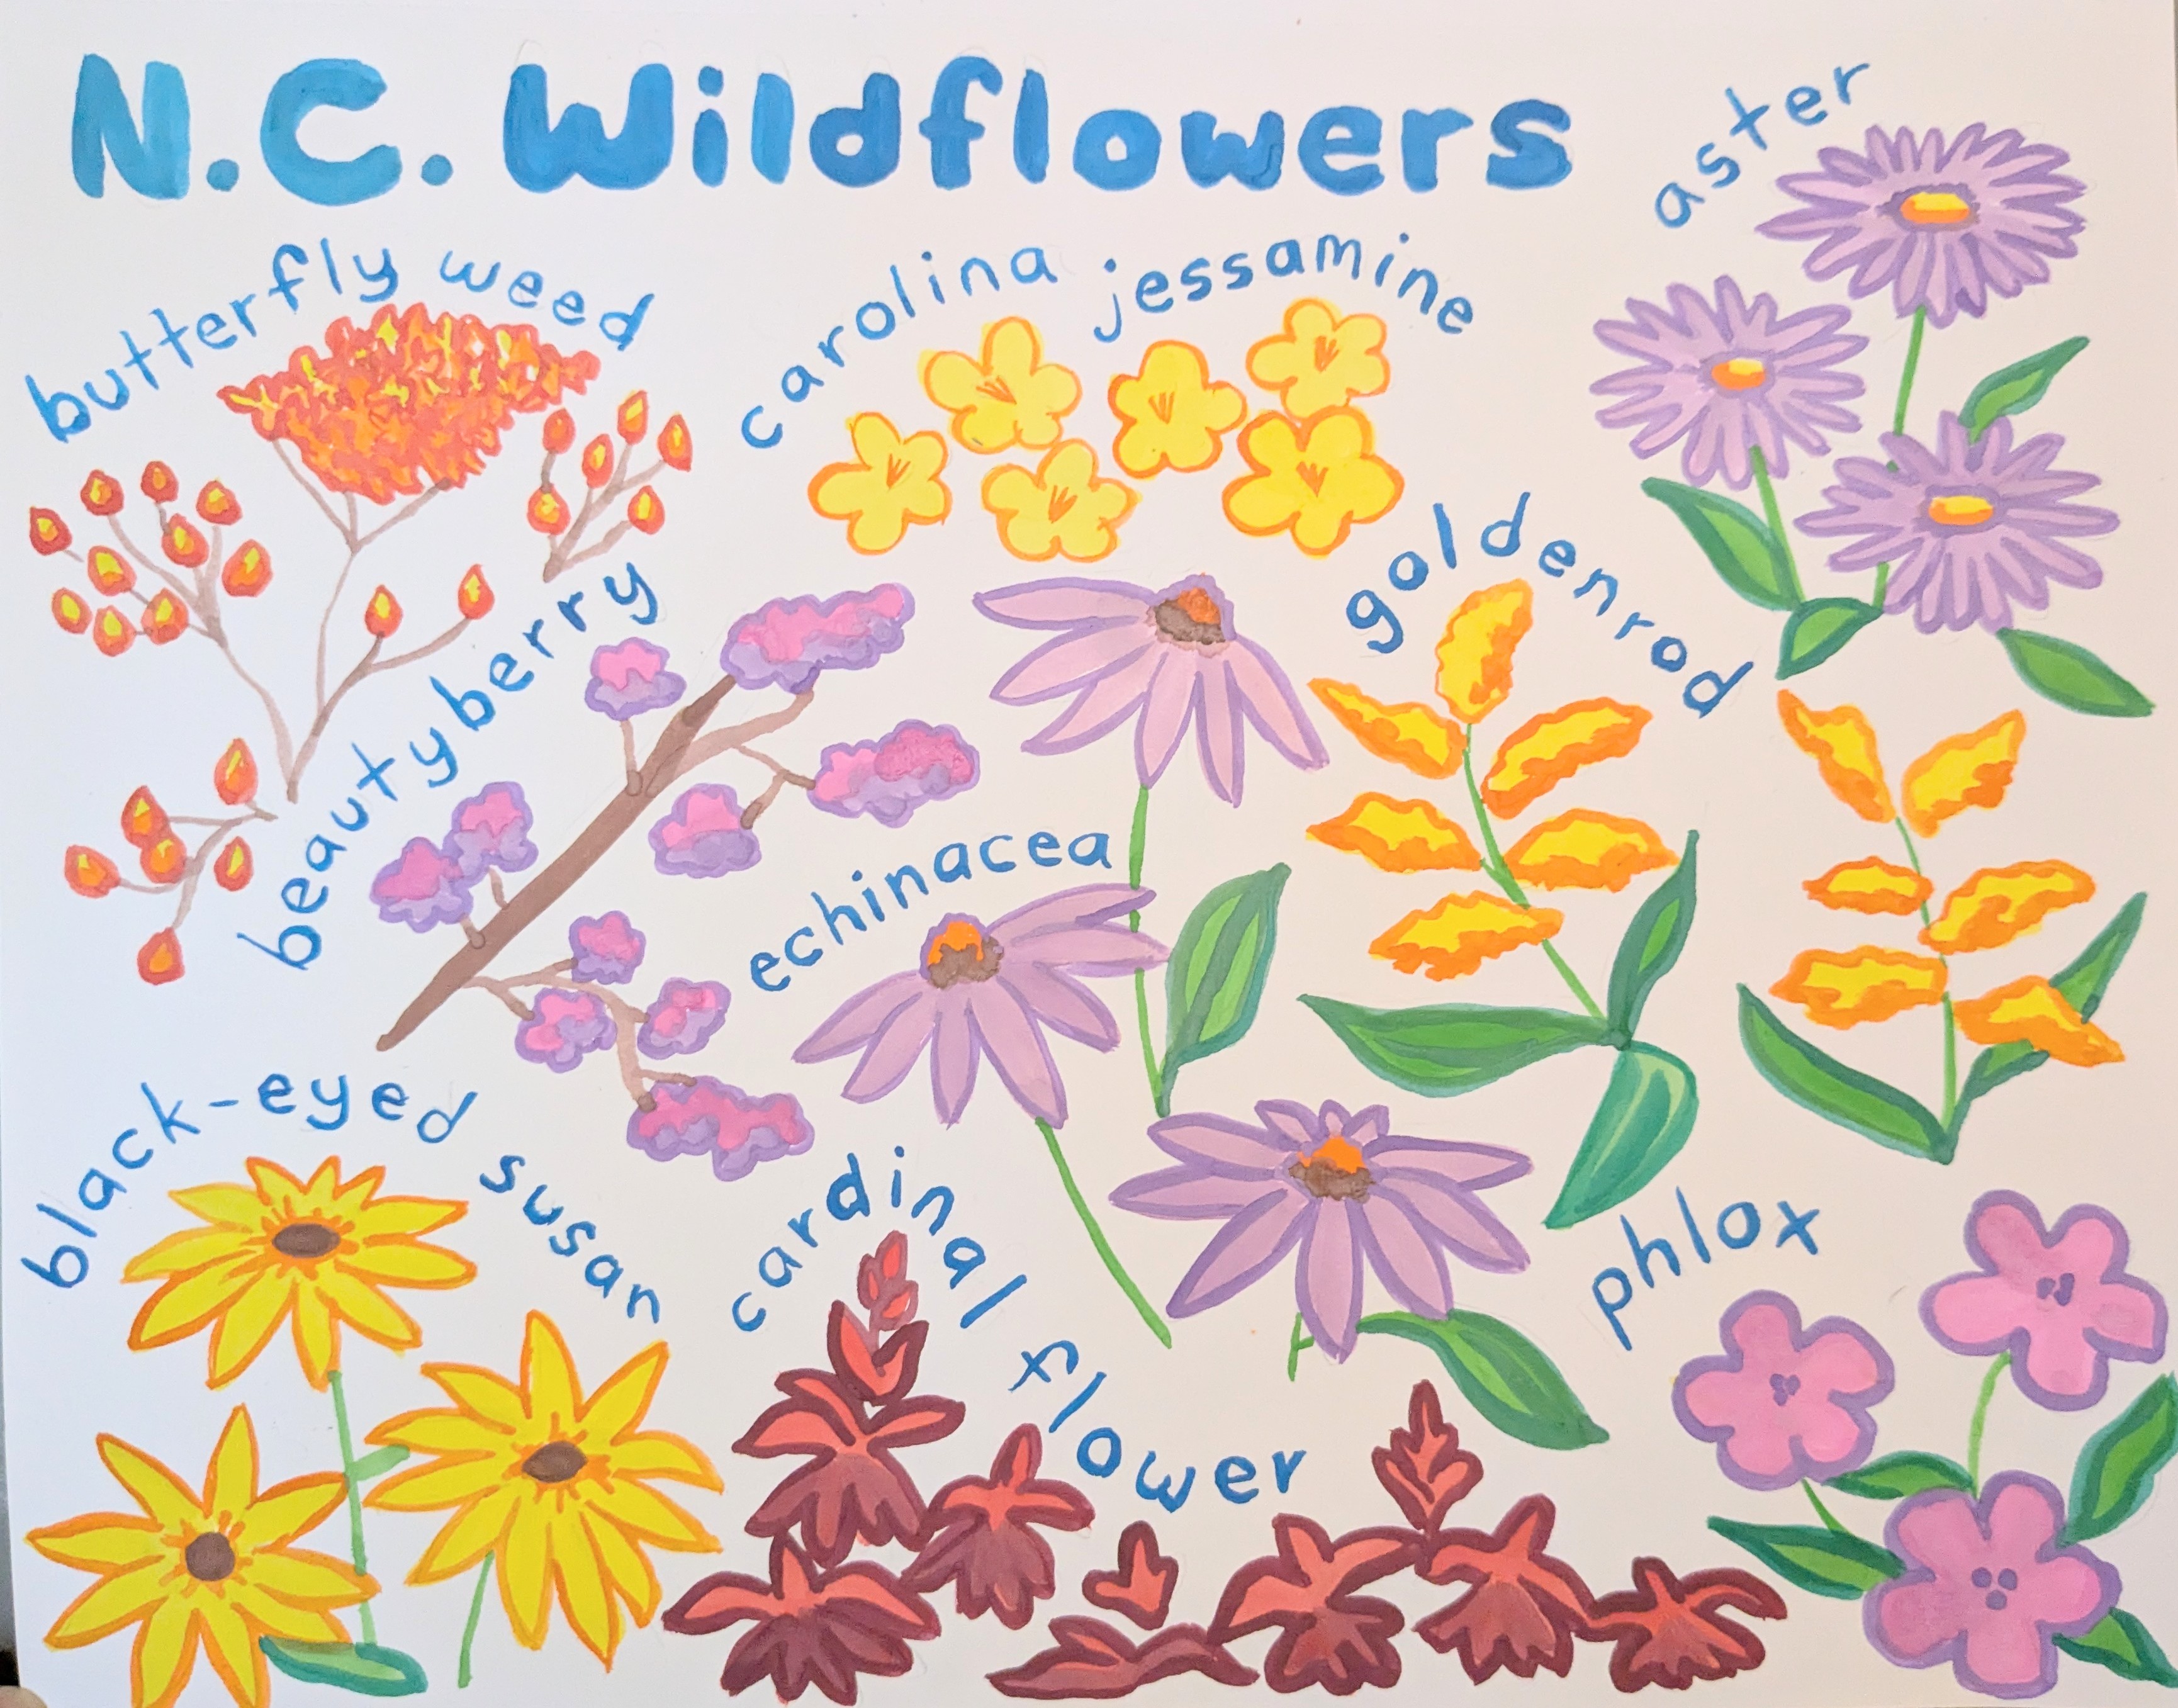 N.C. Wildflowers
aster
butterfly weed
carolina jessamine
goldenrod
beautyberry
echinacea
black-eyed susan
cardinal flower
phlox